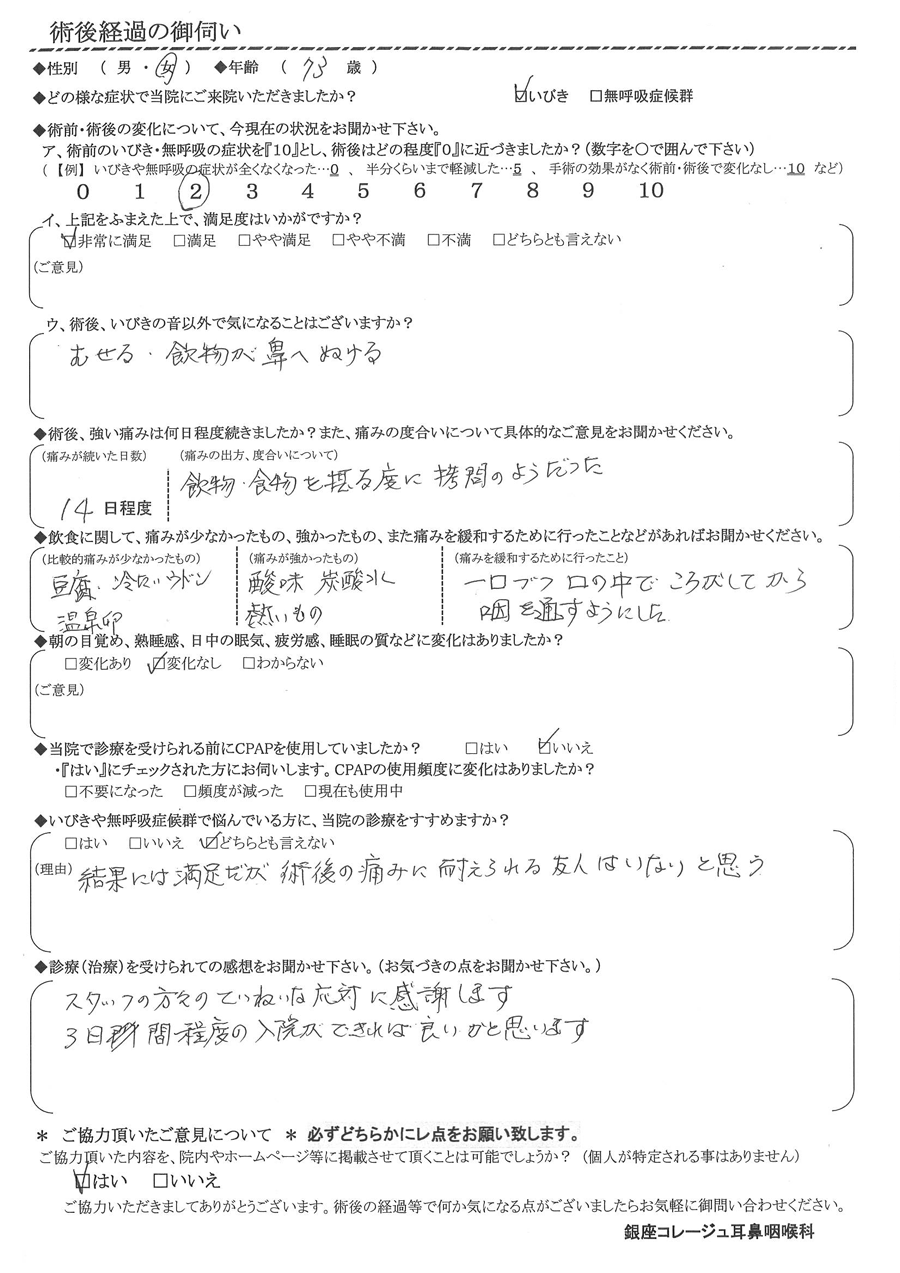 術後経過の御伺い
◆性別 ( 男 ・ 女 ) ◆年齢 ( 73 歳 )
◆どの様な症状で当院にご来院いただきましたか? ☑いびき □無呼吸症候群
◆術前・術後の変化について、今現在の状況をお聞かせ下さい。
ア、術前のいびき・無呼吸の症状を『10』とし、術後はどの程度『0』に近づきましたか?(数字を○で囲んで下さい)
(【例】いびきや無呼吸の症状が全くなくなった…0 、 半分くらいまで軽減した…5 、 手術の効果がなく術前・術後で変化なし…10 など)
0 1 2 3 4 5 6 7 8 9 10
イ、上記をふまえた上で、満足度はいかがですか?
☑非常に満足 □満足 □やや満足 □やや不満 □不満 □どちらとも言えない
(ご意見)
ウ、術後、いびきの音以外で気になることはございますか?
むせる・飲物が鼻へぬける
◆術後、強い痛みは何日程度続きましたか?また、痛みの度合いについて具体的なご意見をお聞かせください。
(痛みが続いた日数) (痛みの出方、度合いについて)
飲物・食物を摂る度に拷問のようだった
14 日程度
◆飲食に関して、痛みが少なかったもの、強かったもの、また痛みを緩和するために行ったことなどがあればお聞かせください。
(比較的痛みが少なかったもの) (痛みが強かったもの) (痛みを緩和するために行ったこと)
豆腐・冷たいウドン 酸味 炭酸水 一口ブツ口の中でころがしてから
温泉卵 熱いもの 咽を通すようにした
◆朝の目覚め、熟睡感、日中の眠気、疲労感、睡眠の質などに変化はありましたか?
□変化あり ☑変化なし □わからない
(ご意見)
◆当院で診療を受けられる前にCPAPを使用していましたか? □はい ☑いいえ
・『はい』にチェックされた方にお伺いします。CPAPの使用頻度に変化はありましたか?
□不要になった □頻度が減った □現在も使用中
◆いびきや無呼吸症候群で悩んでいる方に、当院の診療をすすめますか?
□はい □いいえ ☑どちらとも言えない
(理由) 結果には満足だが術後の痛みに耐えられる友人はいないと思う
◆診療(治療)を受けられての感想をお聞かせ下さい。(お気づきの点をお聞かせ下さい。)
スタッフの方々のていねいな応対に感謝します
3日間程度の入院ができれば良いかと思います
* ご協力頂いたご意見について * 必ずどちらかにレ点をお願い致します。
ご協力頂いた内容を、院内やホームページ等に掲載させて頂くことは可能でしょうか? (個人が特定される事はありません)
☑はい □いいえ
ご協力いただきましてありがとうございます。術後の経過等で何か気になる点がございましたらお気軽に御問い合わせください。
銀座コレージュ耳鼻咽喉科